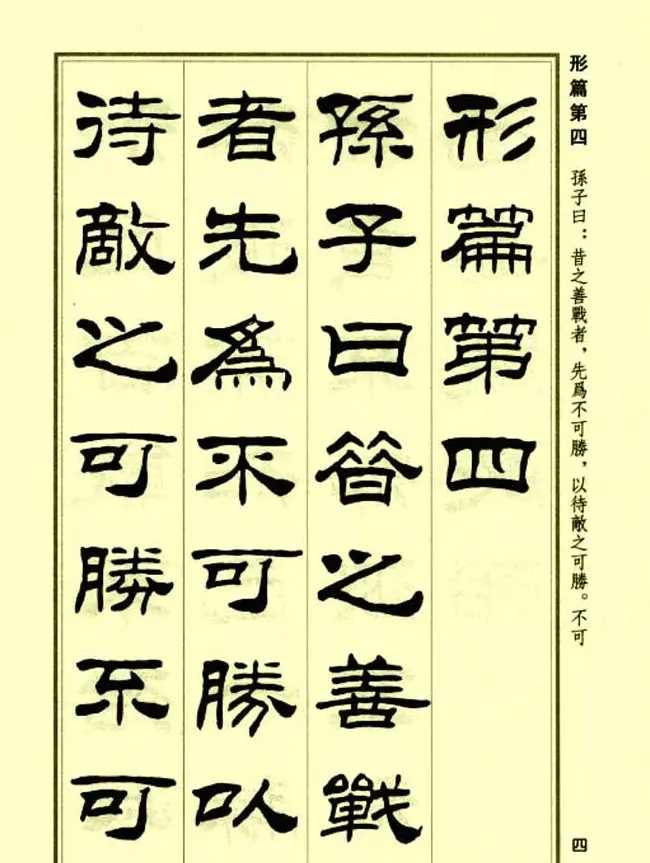 形篇第四 孫子曰：昔之善戰者，先爲不可勝，以待敵之可勝。不可
四
形篇第四
孫子曰昔之善戰
者先爲不可勝以
待敵之可勝不可